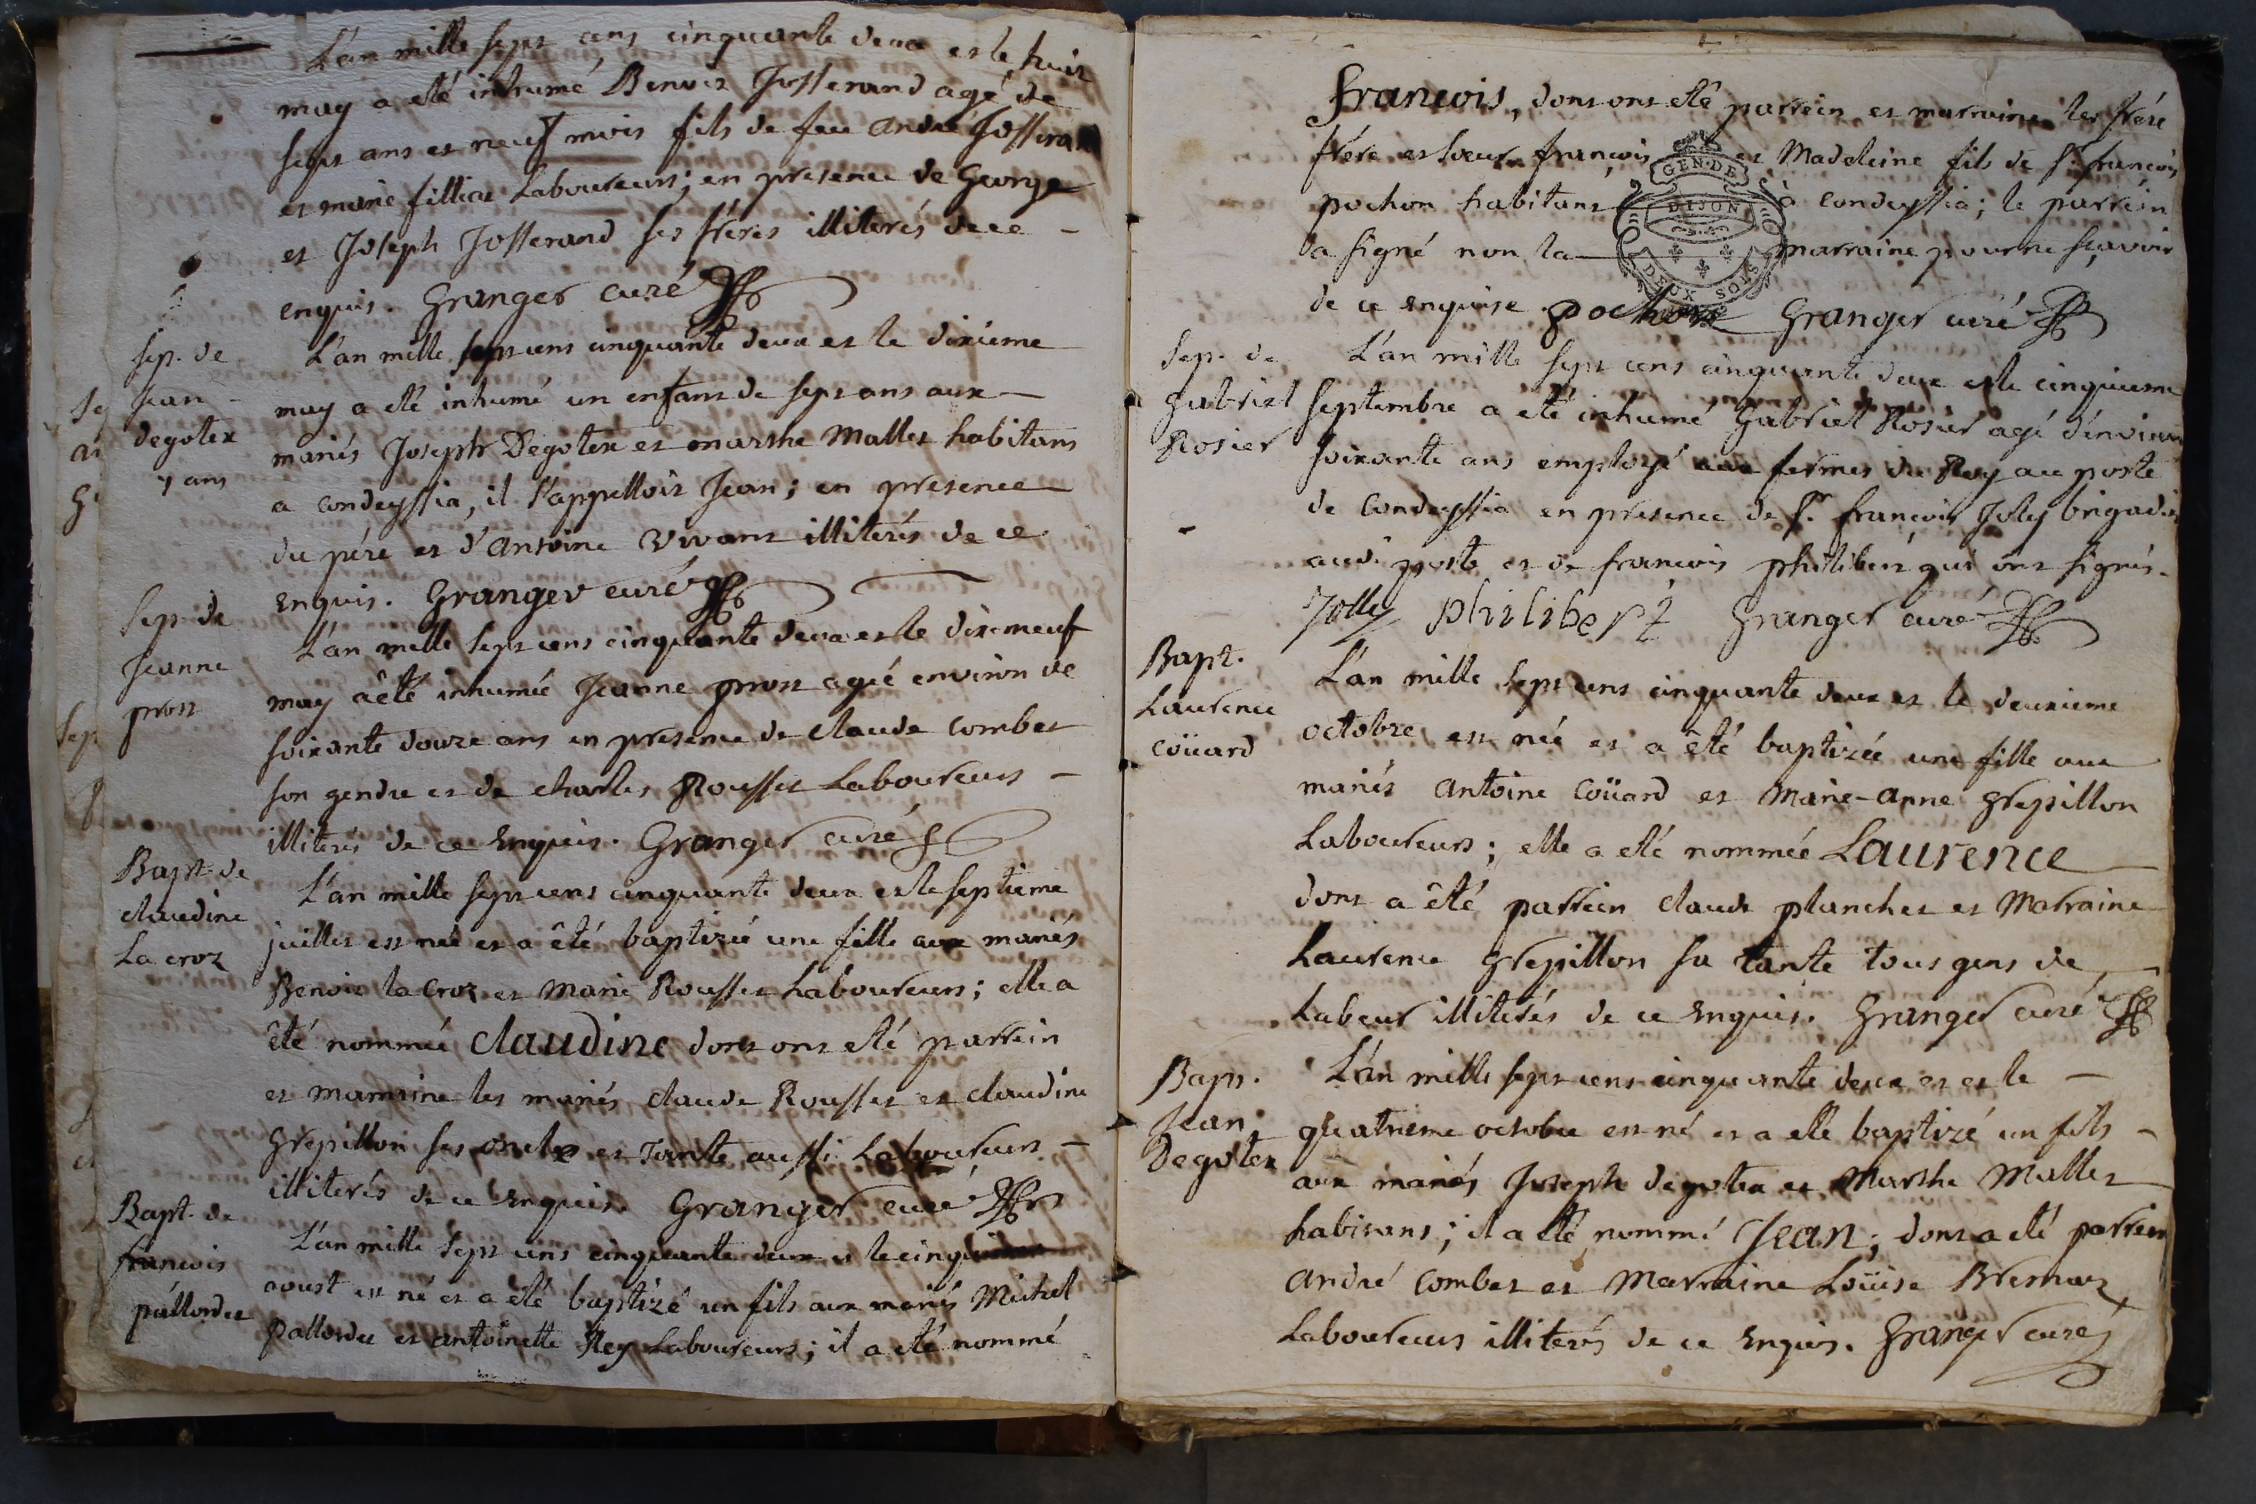 L'an mille sept cens cinquante deux et le huit
may a eté inhumé Benoit Josserand agé de
sept ans et neuf mois fils de feu andré Josseran
et marie filliat Laboureurs; en presence de George
et Joseph Josserand ses fréres illiterés de ce -
enquis. Granger curé
sep. de
Jean
degotex
7 ans
L'an mille sept cens cinquante deux et le dixieme
may a eté inhumé un enfant de sept ans aux
mariés Joseph Degotex et marthe Mallet habitans
a condeyssia, il s'appelloit Jean; en presence
du pére et d'Antoine Vivant illiterés de ce
enquis. Granger curé
Sep. de
Jeanne
prost
L'an mille sept cens cinquante deux et le dix-neuf
may a êté inhumée Jeanne prost agée environ de
soixante douze ans en presence de claude combet
son gendre et de charles Rousset Laboureurs -
illiterés de ce enquis. Granger curé
Bapt. de
claudine
La croz
L'an mille sept cens cinquante deux et le septieme
juillet est née et a êté baptizée une fille aux mariés
Benoit la croz et Marie Rousset Laboureurs; elle a
êté nommée claudine dont ont eté parrein
et marraine les mariés claude Rousset et claudine
Grepillon ses oncle et Tante aussi Laboureurs -
illiterés de ce enquis. Granger curé
Bapt. de
francois
pallordee
L'an mille sept cens cinquante deux et le cinq
aoust est né et a eté baptizé un fils aux mariés Michel
pallordee et antoinette Rey Laboureurs; il a eté nommé
francois, dont ont eté parrein et marraine les frére
frére et soeur francois et Madeleine fils de sr. francois
pochon habitant à condeyssia; le parrein
a signé non la marraine pour ne sçavoir
de ce enquise. pochon Granger curé
GEN. DE
DIJON
DEUX SOLS
Sep. de
Gabriel
Rosier
L'an mille sept cens cinquante deux et le cinquieme
septembre a eté inhumé Gabriel Rosier agé d'environ
soixante ans employé aux fermes du Roy au poste
de condeyssia en presence de sr. francois Joly brigadier
audt. poste et de francois philibert qui ont signés.
Jolly philibert Granger curé
Bapt.
Laurence
coüard
L'an mille sept cens cinquante deux et le deuxieme
octobre est née et a êté baptizée une fille aux
mariés antoine coüard et Marie-anne grepillon
Laboureurs; elle a eté nommée Laurence
dont a êté parrein claude planchet et Marraine
Laurence grepillon sa tante tous gens de
Labeur illiterés de ce enquis. Granger curé
Bapt.
Jean
Degotex
L'an mille sept cens cinquante deux et et le -
quatrieme octobre est né et a eté baptizé un fils -
aux mariés Joseph degotex et Marthe Mallet
habitans; il a eté nommé Jean; dont a eté parrein
andré combet et Marraine Loüise Bremaz
Laboureurs illiterés de ce enquis. Granger curé